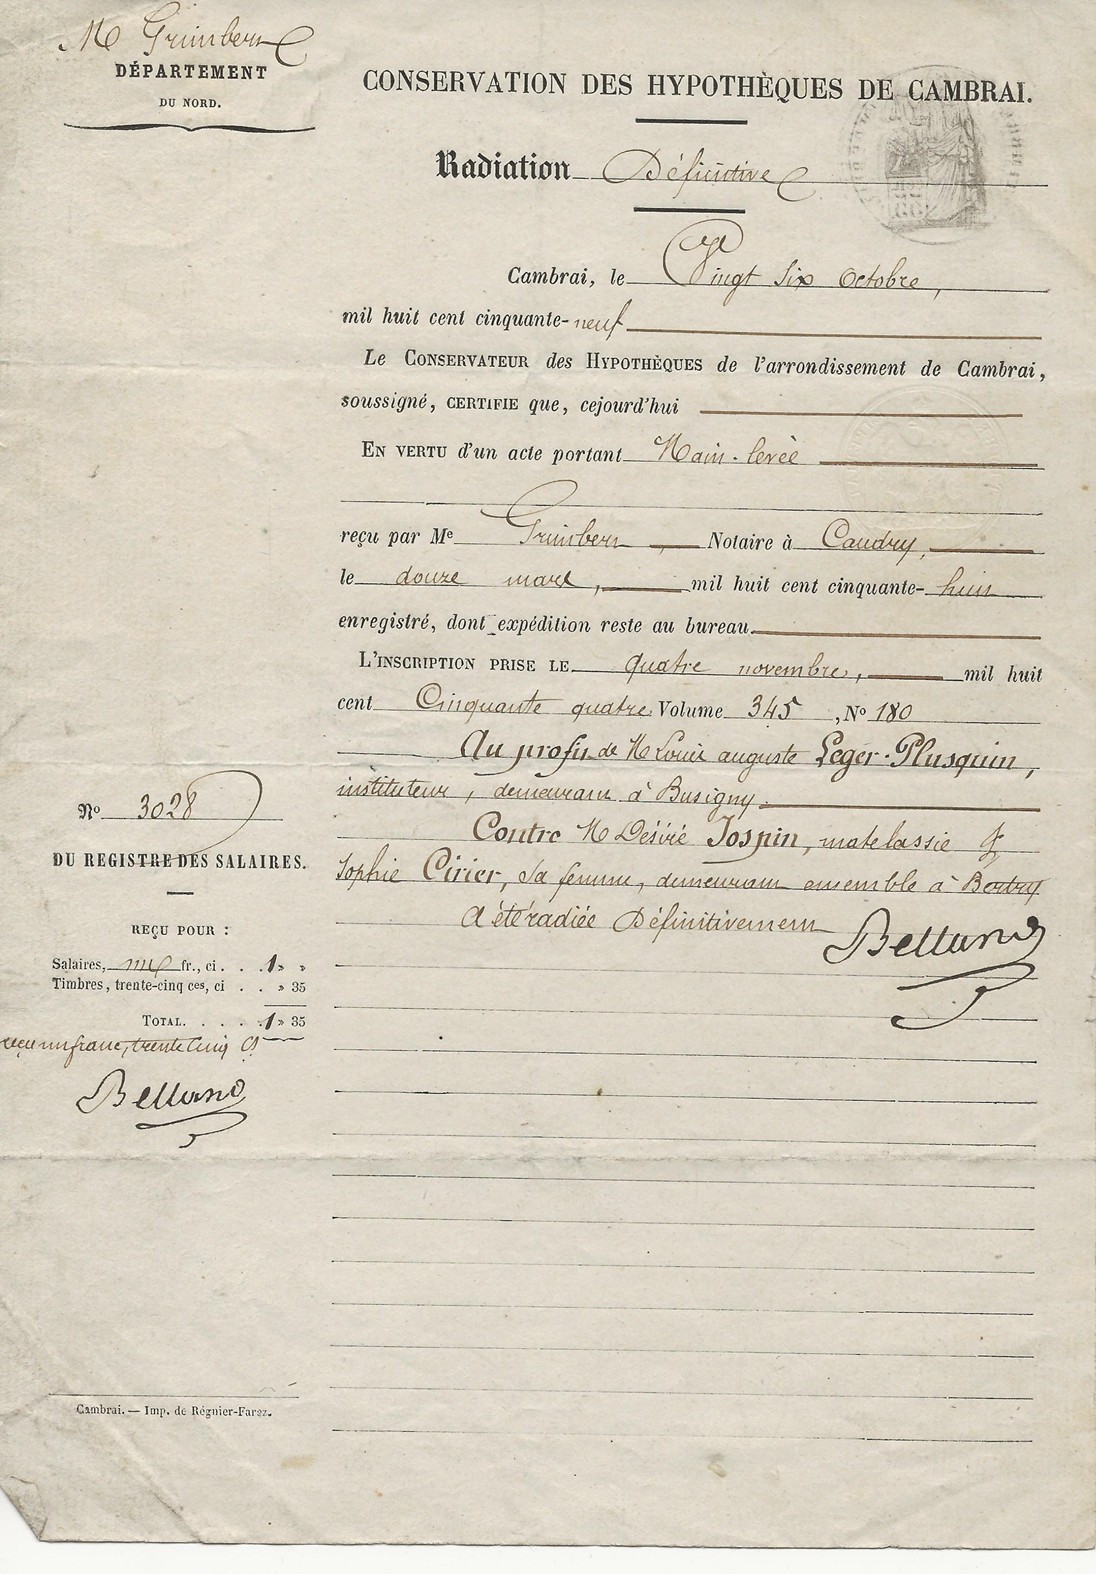 M Grimbert
DÉPARTEMENT
DU NORD.
CONSERVATION DES HYPOTHÈQUES DE CAMBRAI.
Radiation Définitive
Cambrai, le Vingt six Octobre,
mil huit cent cinquante-neuf
Le CONSERVATEUR des HYPOTHÈQUES de l'arrondissement de Cambrai,
soussigné, CERTIFIE que, cejourd'hui
EN VERTU d'un acte portant Main-levée
reçu par Me Grimbert, Notaire à Caudry,
le douze mars, mil huit cent cinquante-huit
enregistré, dont expédition reste au bureau.
L'INSCRIPTION PRISE LE quatre novembre, mil huit
cent Cinquante quatre Volume 345, No 180
Au profit de M Louis auguste Leger-Plusquin,
instituteur, demeurant à Busigny.
Contre M Désiré Jospin, matelassié &
Sophie Cirier, sa femme, demeurant ensemble à Bertry
A été radiée Définitivement
No 3028
DU REGISTRE DES SALAIRES.
REÇU POUR :
Salaires, un fr., ci . . 1 » »
Timbres, trente-cinq ces, ci . . » 35
TOTAL. . . . . 1 » 35
reçu un franc, trente Cinq Cs
Cambrai. — Imp. de Régnier-Farez.